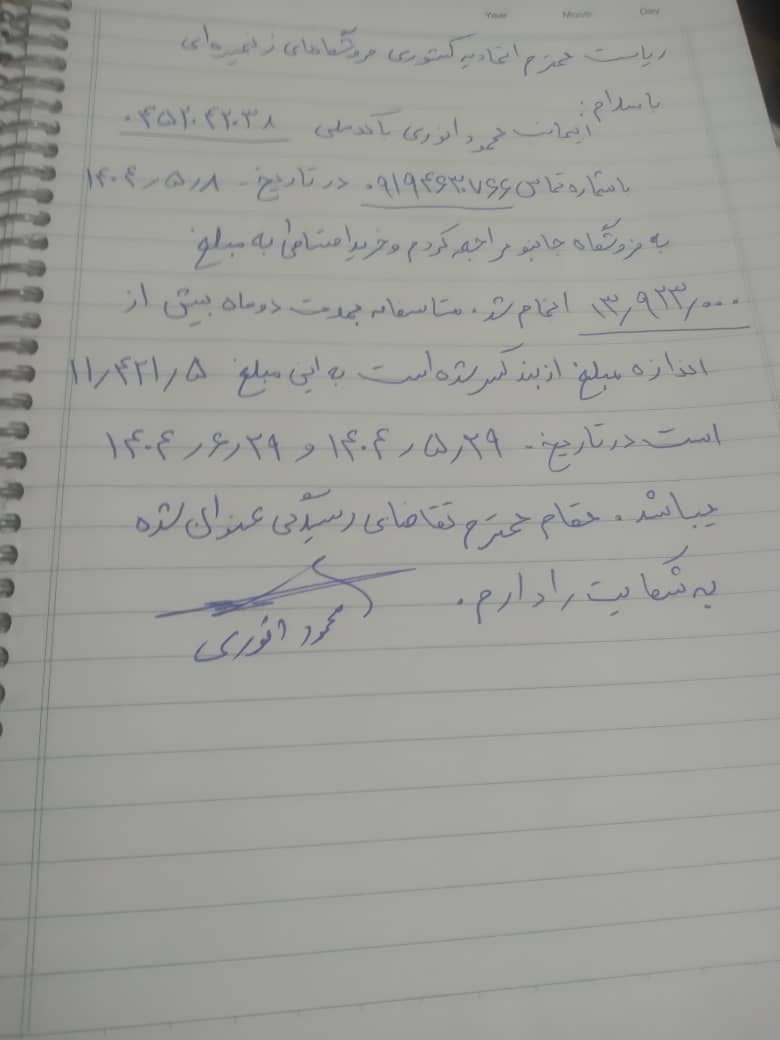 Year Month Day
ریاست محترم اتحادیه کشوری فروشگاههای زنجیره‌ای
باسلام:
اینجانب محمود انوری با کدملی ۰۴۵۲۰۴۲۰۳۸
باشماره تماس ۰۹۱۹۴۶۳۰۷۶۶ در تاریخ ۱۴۰۴٫۵٫۸
به فروشگاه جانبو مراجعه کردم و خرید اقساطی به مبلغ
۱۳٫۹۲۳٫۰۰۰ انجام شد. متاسفانه بمدت دو ماه بیش از
اندازه مبلغ از بنده کسر شده است به این مبلغ ۱۱٫۴۲۱٫۵
است در تاریخ ۱۴۰۴٫۵٫۲۹ و ۱۴۰۴٫۶٫۲۹
میباشد. مقام محترم تقاضای رسیدگی عنوان شده
به شکایت را دارم.
محمود انوری